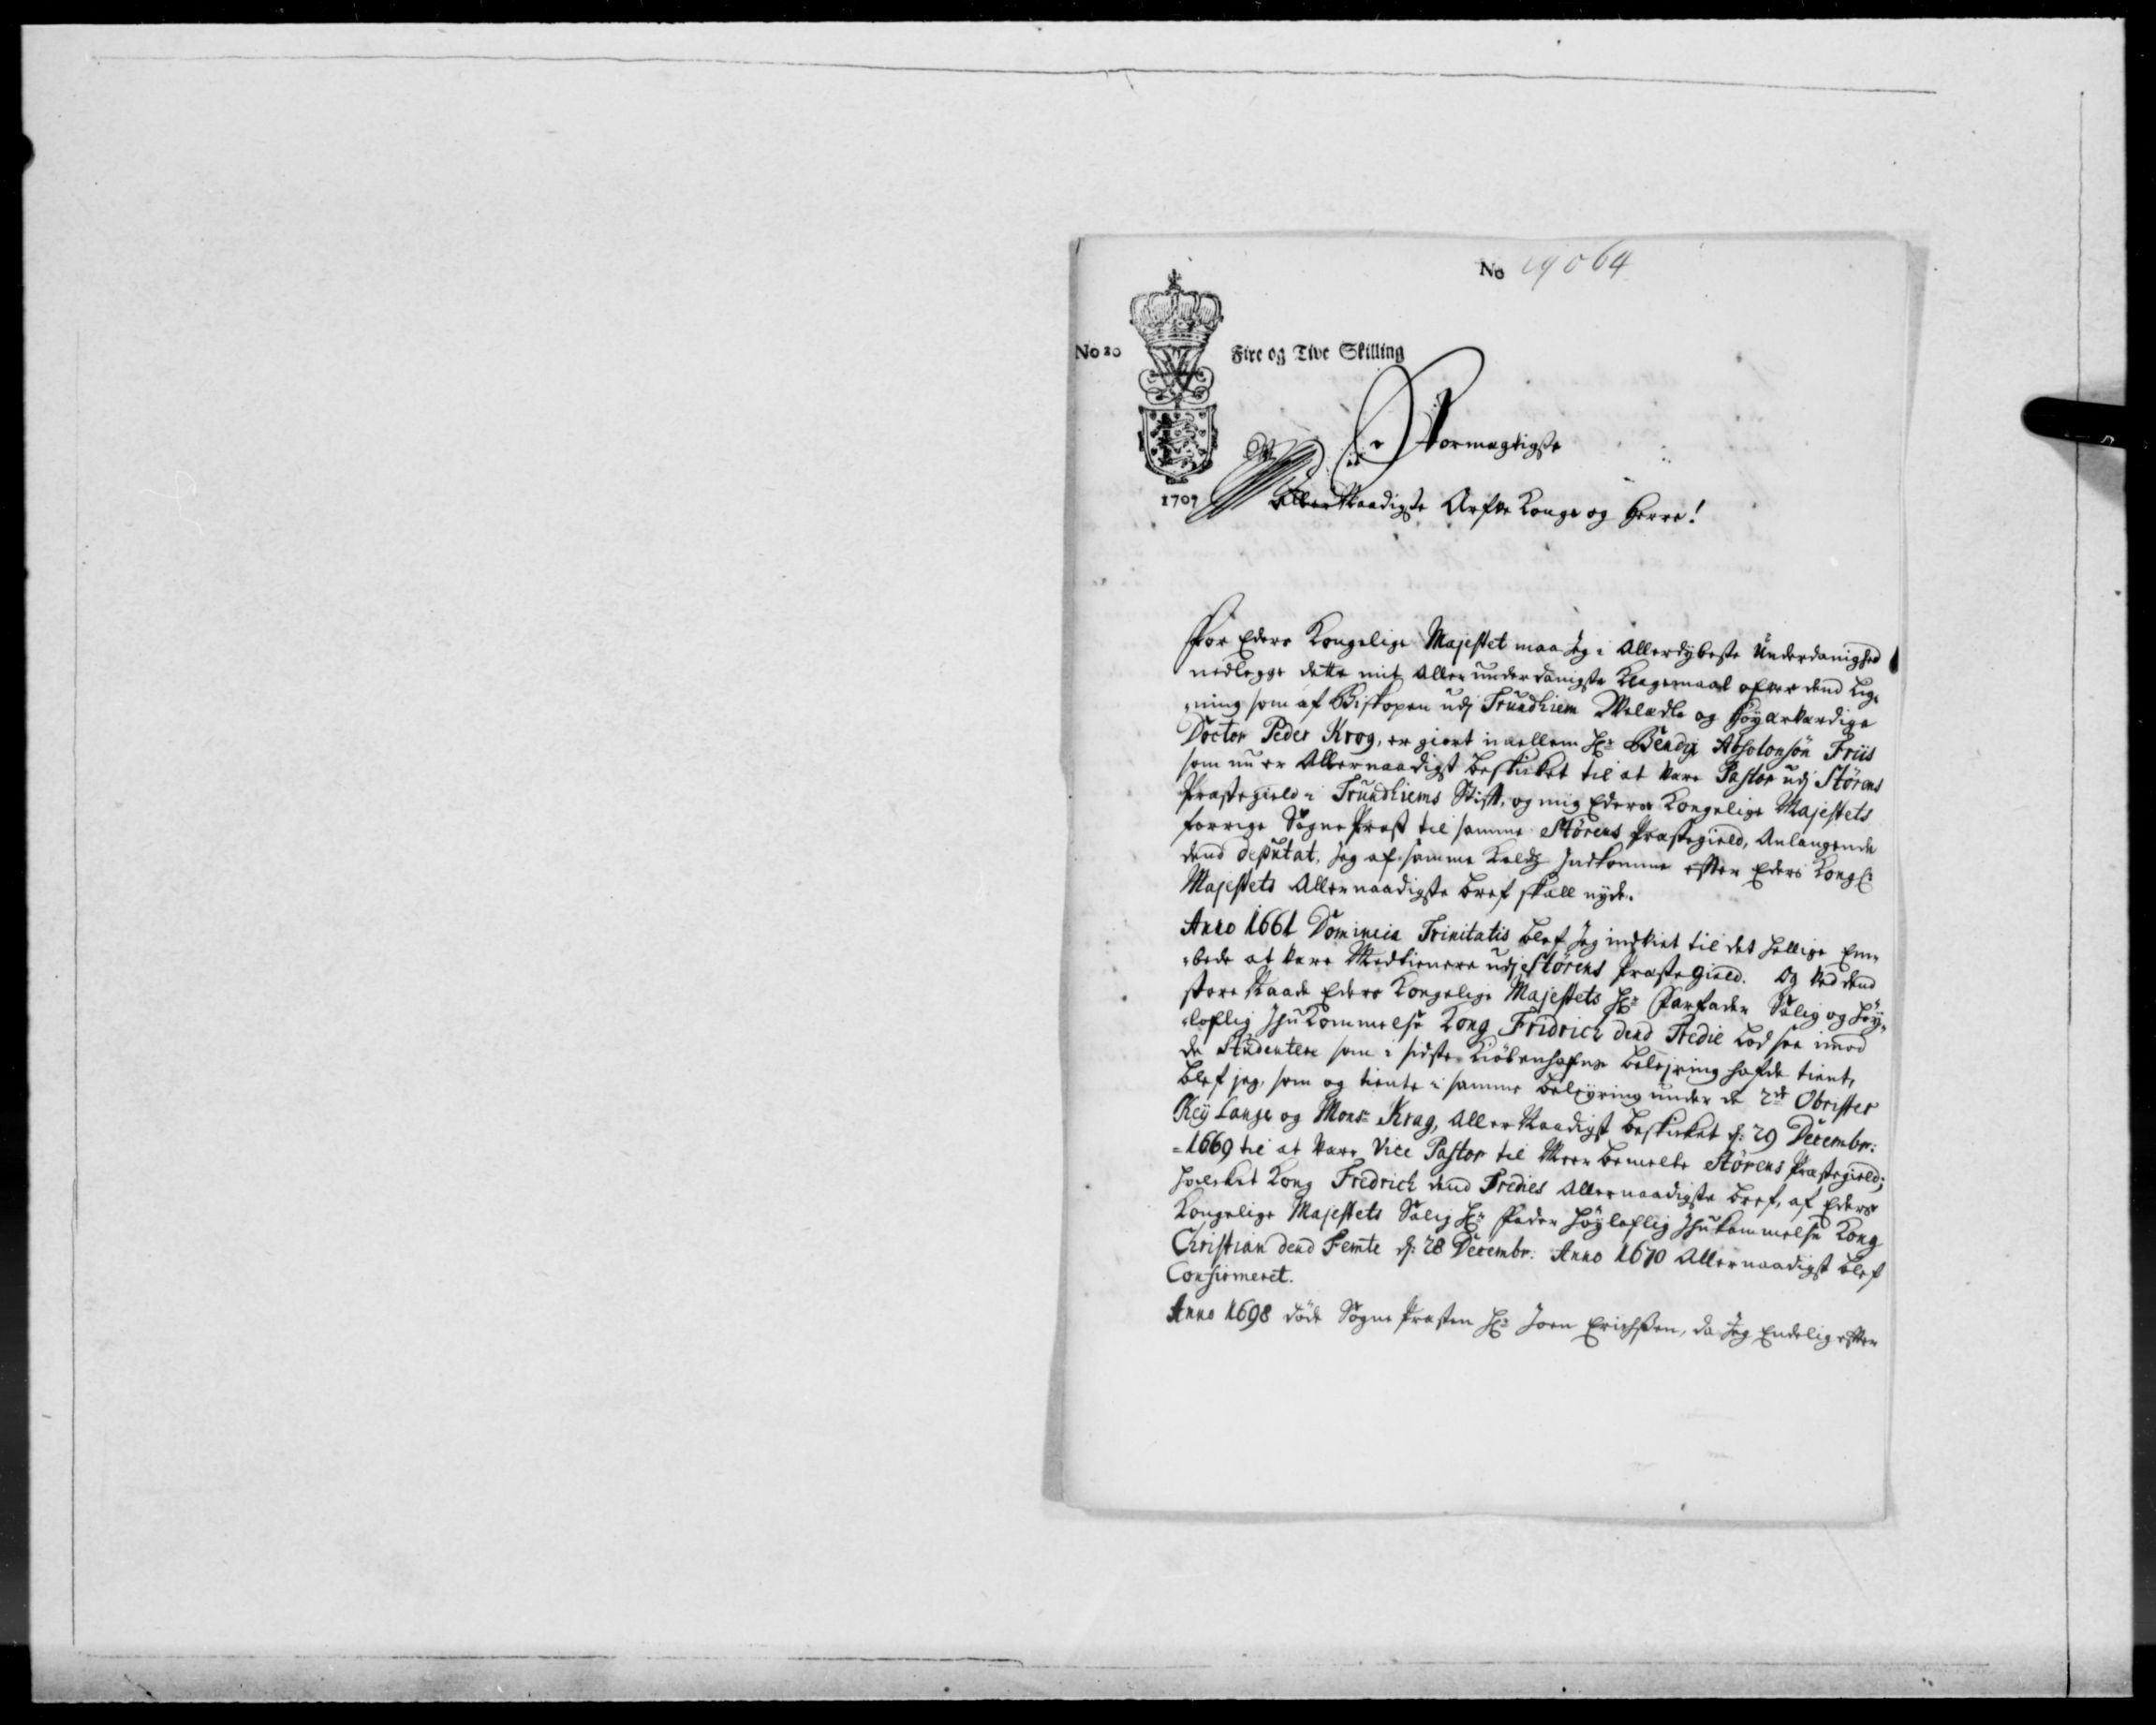 No 19064
No 20
Fire og Tive Skilling
1707
Stormægtigste
AllerNaadigste Arfve Konge og Herre!
For Eders Kongelige Majestet maa Jeg i Allerdybeste Underdanighed
nedlegge dette mit Allerunderdanigste Klagemaal ofver dend Lig-
-ning som af Biskopen udj Trundhiem Velædle og Høyærværdige
Doctor Peder Krog, er giort imellem Hr Bendix Absolonsøn Friis
som nu er Allernaadigst beskicket til at være Pastor udj Störens
Præstegield i Trundhiems Stift, og mig Eders Kongelige Majestets
forrige Sogne Præst til samme Störens Præstegield, Anlangende
dend deputat, Jeg af samme Kalds Indkomme efter Eders Kongl:
Majestets Allernaadigste bref skall nyde.
Anno 1661 Dominica Trinitatis blef Jeg indviet til det hellige Em-
-bede at være Medtienere udj Störens Præstegield. Og ved dend
store Naade Eders Kongelige Majestets Hr Farfader Salig og Høy-
-loflig Ihukommelse Kong Fridrich dend Tredie lod see imod
de Studentere som i sidste Kiöbenhafns beleyring hafde tient,
blef jeg, som og tiente i samme beleyring under de 2de Obrister
Key Lange og Monsr Krag, AllerNaadigst beskicket d: 29 Decembr:
1669 til at være Vice Pastor til Meerbemelte Störens Præstegield;
hvilcket Kong Fredrich dend Tredies Allernaadigste bref, af Eders
Kongelige Majestets Salig Hr Fader Høyloflig Ihukommelse Kong
Christian dend Femte d: 28 Decembr. Anno 1670 Allernaadigst blef
Confirmeret.
Anno 1698 döde Sogne Præsten Hr Joen Erichsen, da Jeg Endelig efter